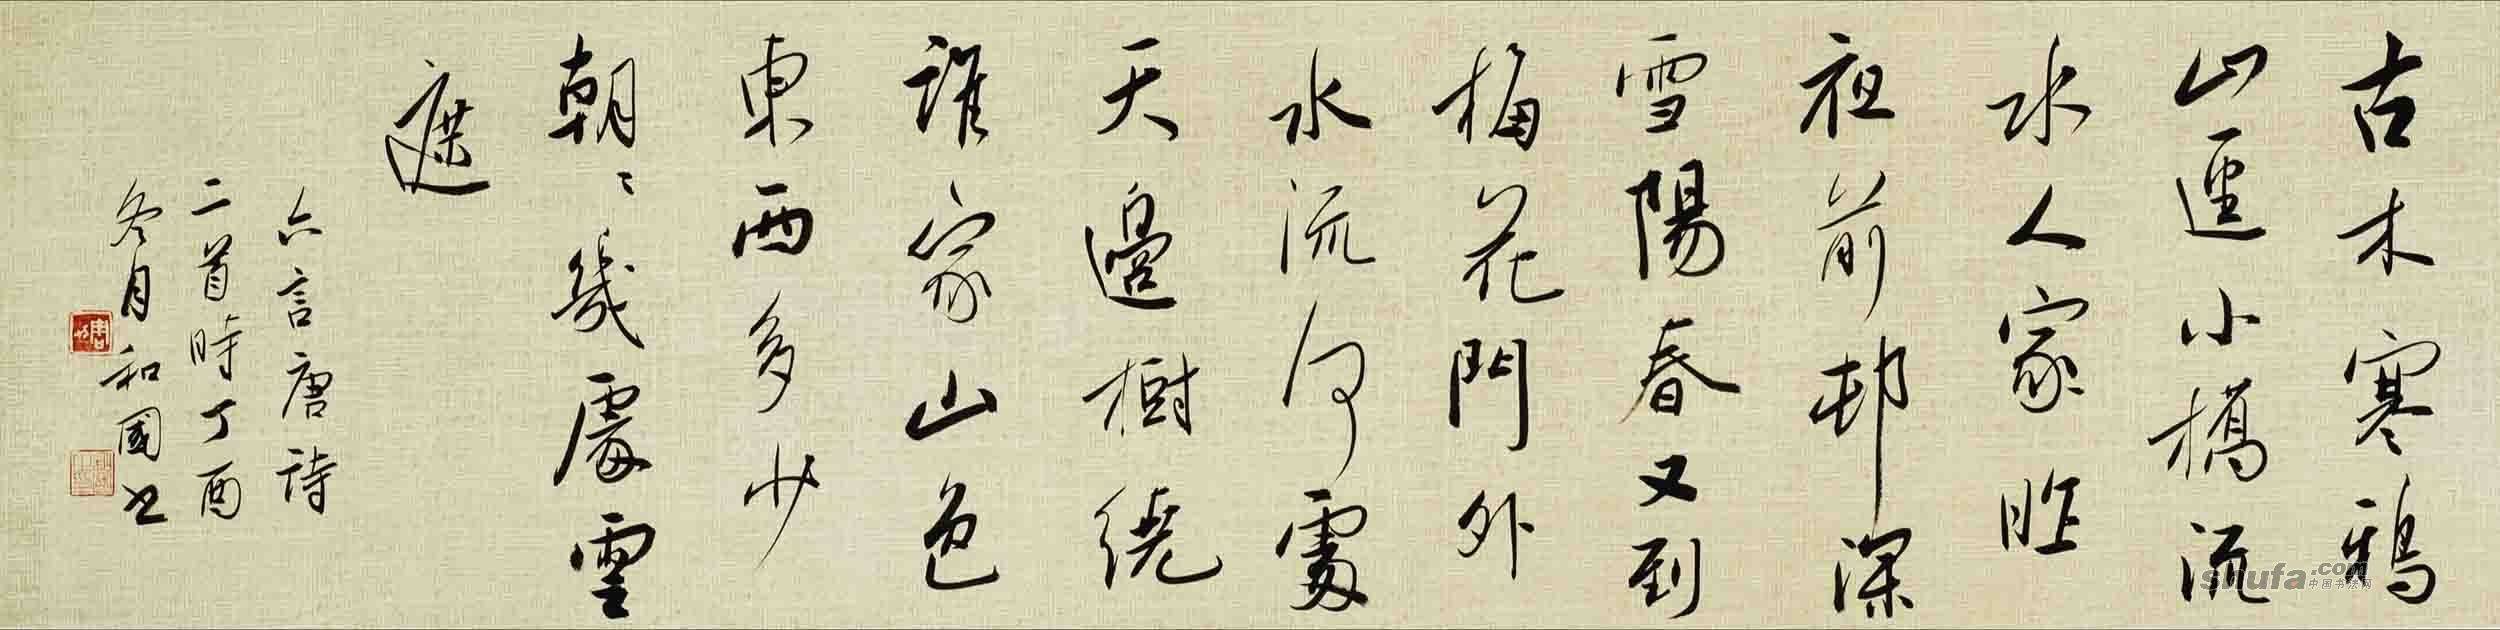 古木寒鴉
山逕小橋流
水人家昨
夜前邨深
雪陽春又到
梅花門外
水流何處
天邊樹繞
誰家山色
東西多少
朝〻幾處雲
遮
六言唐詩
二首時丁酉
冬月和國书
shufa.com
中国书法网